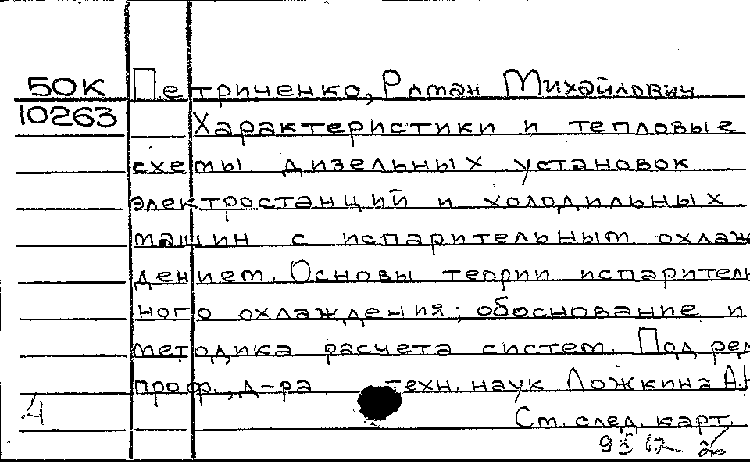 50К Петриченко, Роман Михайлович
10263 Характеристики и тепловые
схемы дизельных установок
электростанций и холодильных
машин с испарительным охлаж
дением. Основы теории испаритель
ного охлаждения; обоснование и
методика расчета систем. Под ред
проф., д-ра техн. наук Ложкина А.Н
Л
См. след. карт.